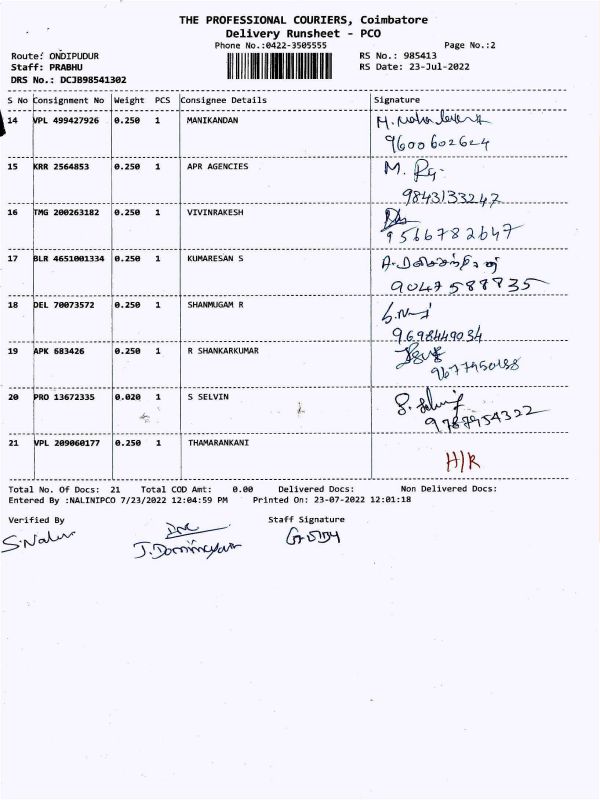 THE PROFESSIONAL COURIERS, Coimbatore
Delivery Runsheet - PCO
Phone No.:0422-3505555 Page No.:2
Route: ONDIPUDUR RS No.: 985413
Staff: PRABHU RS Date: 23-Jul-2022
DRS No.: DCJB98541302
S No Consignment No Weight PCS Consignee Details Signature
14 VPL 499427926 0.250 1 MANIKANDAN
9600602624
15 KRR 2564853 0.250 1 APR AGENCIES M.
9843133247
16 TMG 200263182 0.250 1 VIVINRAKESH
9566782647
17 BLR 4651001334 0.250 1 KUMARESAN S
9047588835
18 DEL 70073572 0.250 1 SHANMUGAM R
9698449034
19 APK 683426 0.250 1 R SHANKARKUMAR
20 PRO 13672335 0.020 1 S SELVIN S. Selvin
9787954322
21 VPL 209060177 0.250 1 THAMARANKANI
H/R
Total No. Of Docs: 21 Total COD Amt: 0.00 Delivered Docs: Non Delivered Docs:
Entered By :NALINIPCO 7/23/2022 12:04:59 PM Printed On: 23-07-2022 12:01:18
Verified By Staff Signature